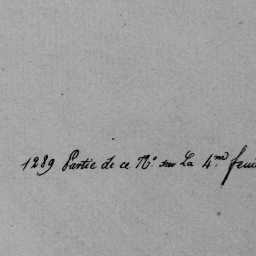 1289 Partie de ce N.º sur La 4.me